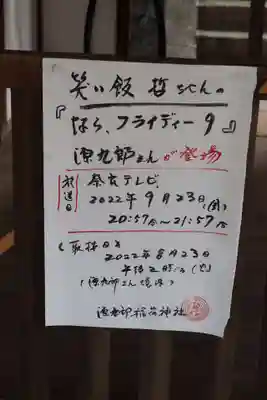 笑い飯 哲さんの
『なら、フライデー9』
源九郎さんが登場
放送日 奈良テレビ
2022年9月23日(金)
20:57分〜21:57分
《取材日》
2022年8月23日
午后2時〜(火)
(源九郎さん境内)
源九郎稲荷神社